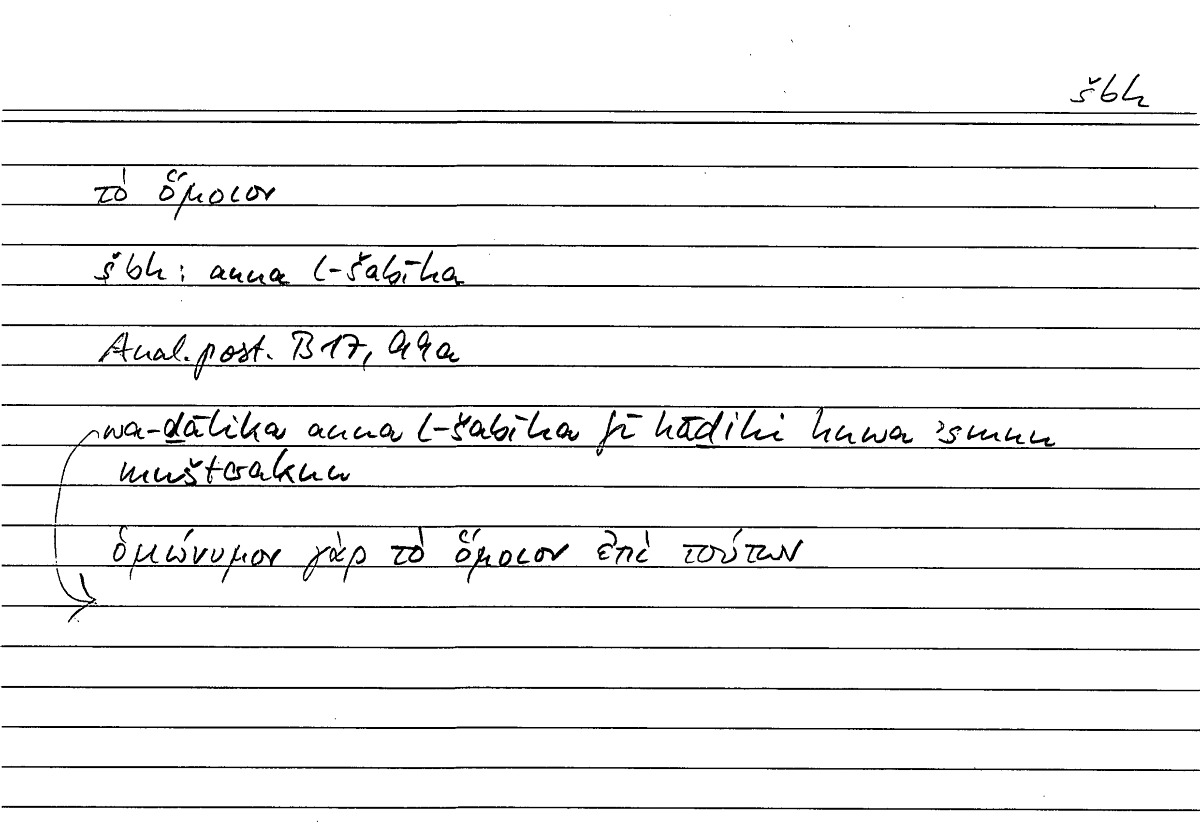 šbh
τὸ ὅμοιον
šbh: anna l-šabīha
Anal. post. B 17, 99a
wa-ḏālika anna l-šabīha fī hāḏihi huwa ʾsmun
muštarakun
ὁμώνυμον γὰρ τὸ ὅμοιον ἐπὶ τούτων